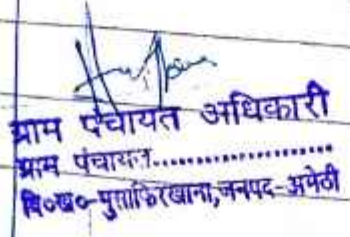 ग्राम पंचायत अधिकारी
ग्राम पंचायत.....................
वि०ख०-मुसाफिरखाना,जनपद-अमेठी